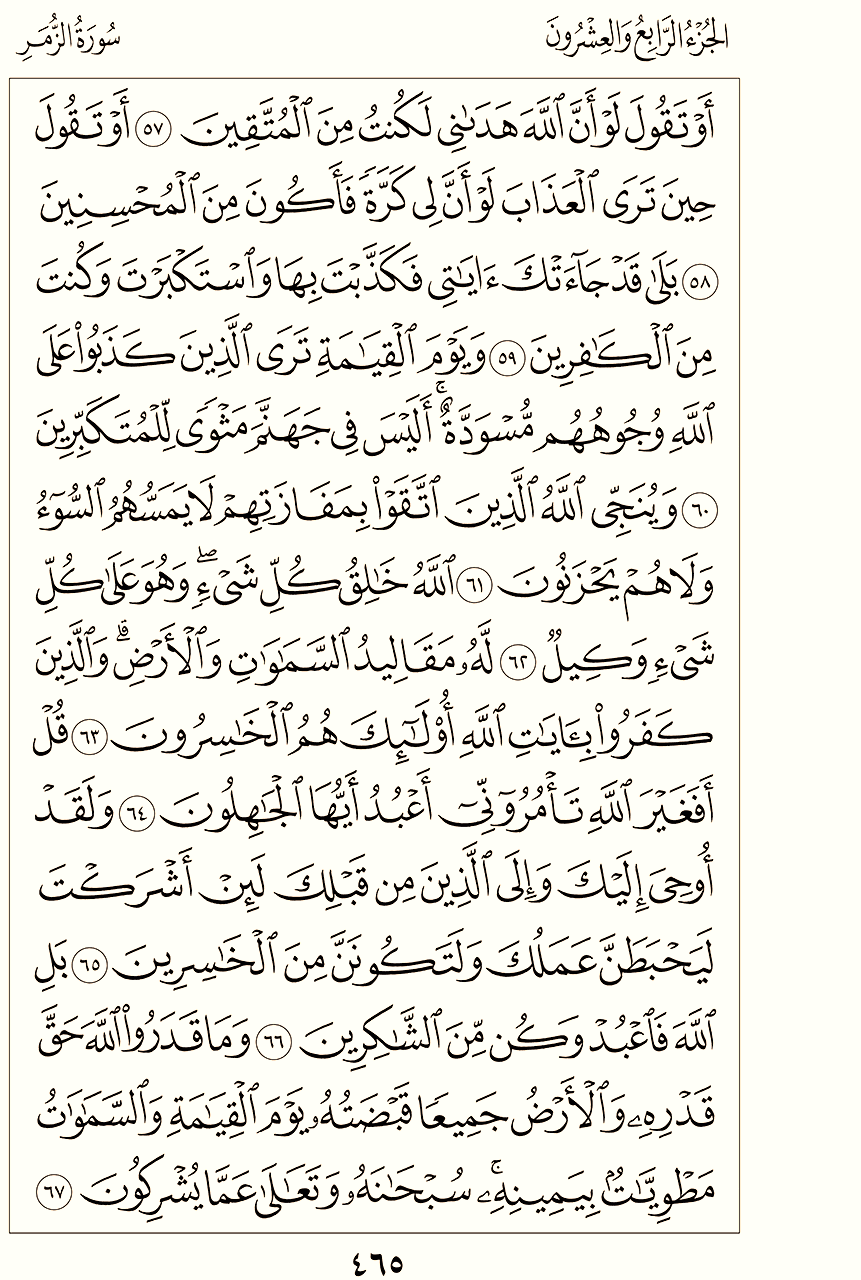 الجُزْءُ الرَّابِعُ وَالعِشْرُونَ
سُورَةُ الزُّمَرِ
أَوْ تَقُولَ لَوْ أَنَّ ٱللَّهَ هَدَىٰنِى لَكُنتُ مِنَ ٱلْمُتَّقِينَ ٥٧ أَوْ تَقُولَ
حِينَ تَرَى ٱلْعَذَابَ لَوْ أَنَّ لِى كَرَّةً فَأَكُونَ مِنَ ٱلْمُحْسِنِينَ
٥٨ بَلَىٰ قَدْ جَآءَتْكَ ءَايَٰتِى فَكَذَّبْتَ بِهَا وَٱسْتَكْبَرْتَ وَكُنتَ
مِنَ ٱلْكَٰفِرِينَ ٥٩ وَيَوْمَ ٱلْقِيَٰمَةِ تَرَى ٱلَّذِينَ كَذَبُوا۟ عَلَى
ٱللَّهِ وُجُوهُهُم مُّسْوَدَّةٌ ۚ أَلَيْسَ فِى جَهَنَّمَ مَثْوًى لِّلْمُتَكَبِّرِينَ
٦٠ وَيُنَجِّى ٱللَّهُ ٱلَّذِينَ ٱتَّقَوْا۟ بِمَفَازَتِهِمْ لَا يَمَسُّهُمُ ٱلسُّوٓءُ
وَلَا هُمْ يَحْزَنُونَ ٦١ ٱللَّهُ خَٰلِقُ كُلِّ شَىْءٍ ۖ وَهُوَ عَلَىٰ كُلِّ
شَىْءٍ وَكِيلٌ ٦٢ لَّهُۥ مَقَالِيدُ ٱلسَّمَٰوَٰتِ وَٱلْأَرْضِ ۗ وَٱلَّذِينَ
كَفَرُوا۟ بِـَٔايَٰتِ ٱللَّهِ أُو۟لَٰٓئِكَ هُمُ ٱلْخَٰسِرُونَ ٦٣ قُلْ
أَفَغَيْرَ ٱللَّهِ تَأْمُرُوٓنِّىٓ أَعْبُدُ أَيُّهَا ٱلْجَٰهِلُونَ ٦٤ وَلَقَدْ
أُوحِىَ إِلَيْكَ وَإِلَى ٱلَّذِينَ مِن قَبْلِكَ لَئِنْ أَشْرَكْتَ
لَيَحْبَطَنَّ عَمَلُكَ وَلَتَكُونَنَّ مِنَ ٱلْخَٰسِرِينَ ٦٥ بَلِ
ٱللَّهَ فَٱعْبُدْ وَكُن مِّنَ ٱلشَّٰكِرِينَ ٦٦ وَمَا قَدَرُوا۟ ٱللَّهَ حَقَّ
قَدْرِهِۦ وَٱلْأَرْضُ جَمِيعًا قَبْضَتُهُۥ يَوْمَ ٱلْقِيَٰمَةِ وَٱلسَّمَٰوَٰتُ
مَطْوِيَّٰتٌۢ بِيَمِينِهِۦ ۚ سُبْحَٰنَهُۥ وَتَعَٰلَىٰ عَمَّا يُشْرِكُونَ ٦٧
٤٦٥